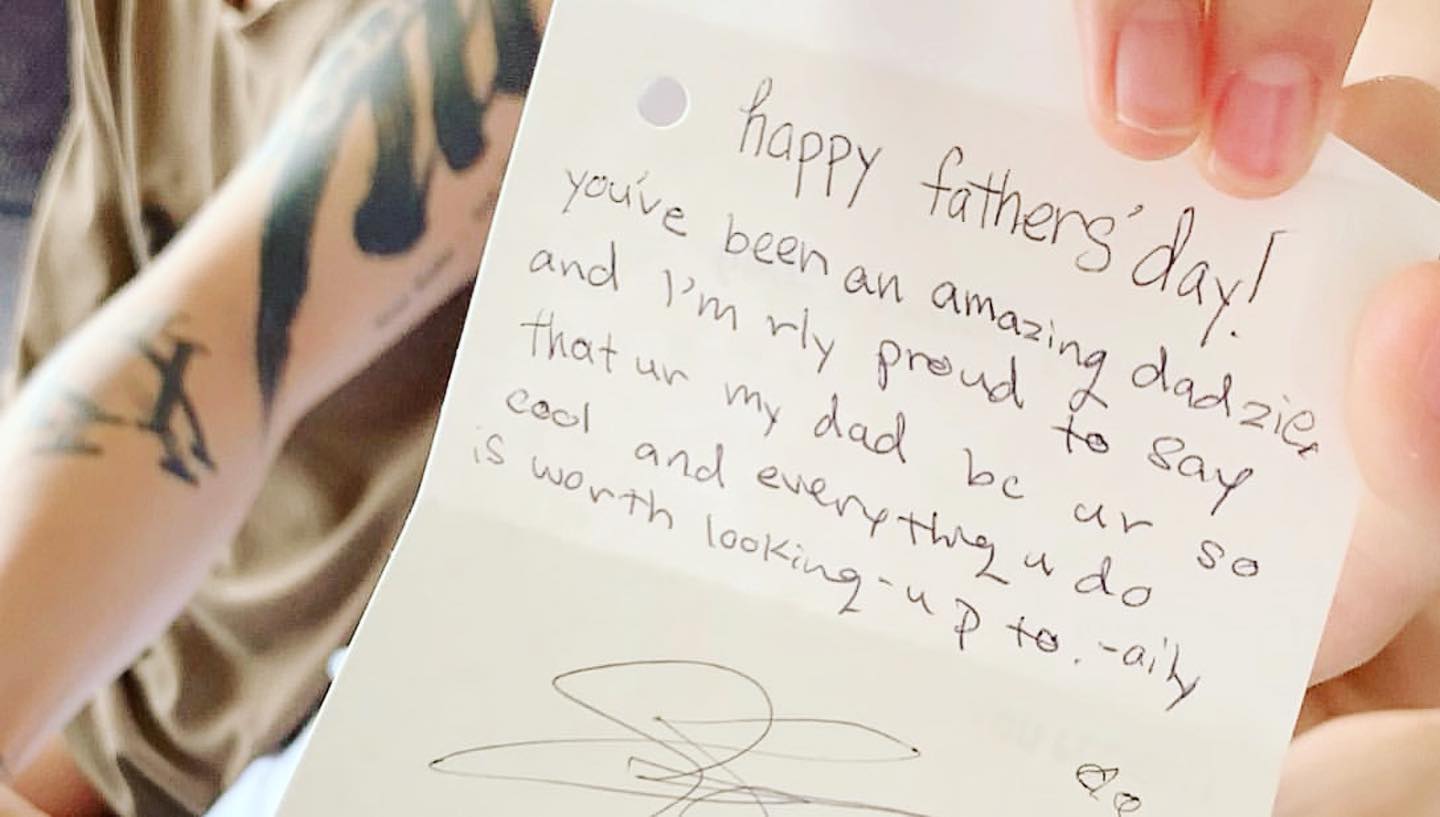 happy fathers' day!
you've been an amazing dadzie,
and I'm rly proud to say
that ur my dad bc ur so
cool and everything u do
is worth looking-up to. -aily